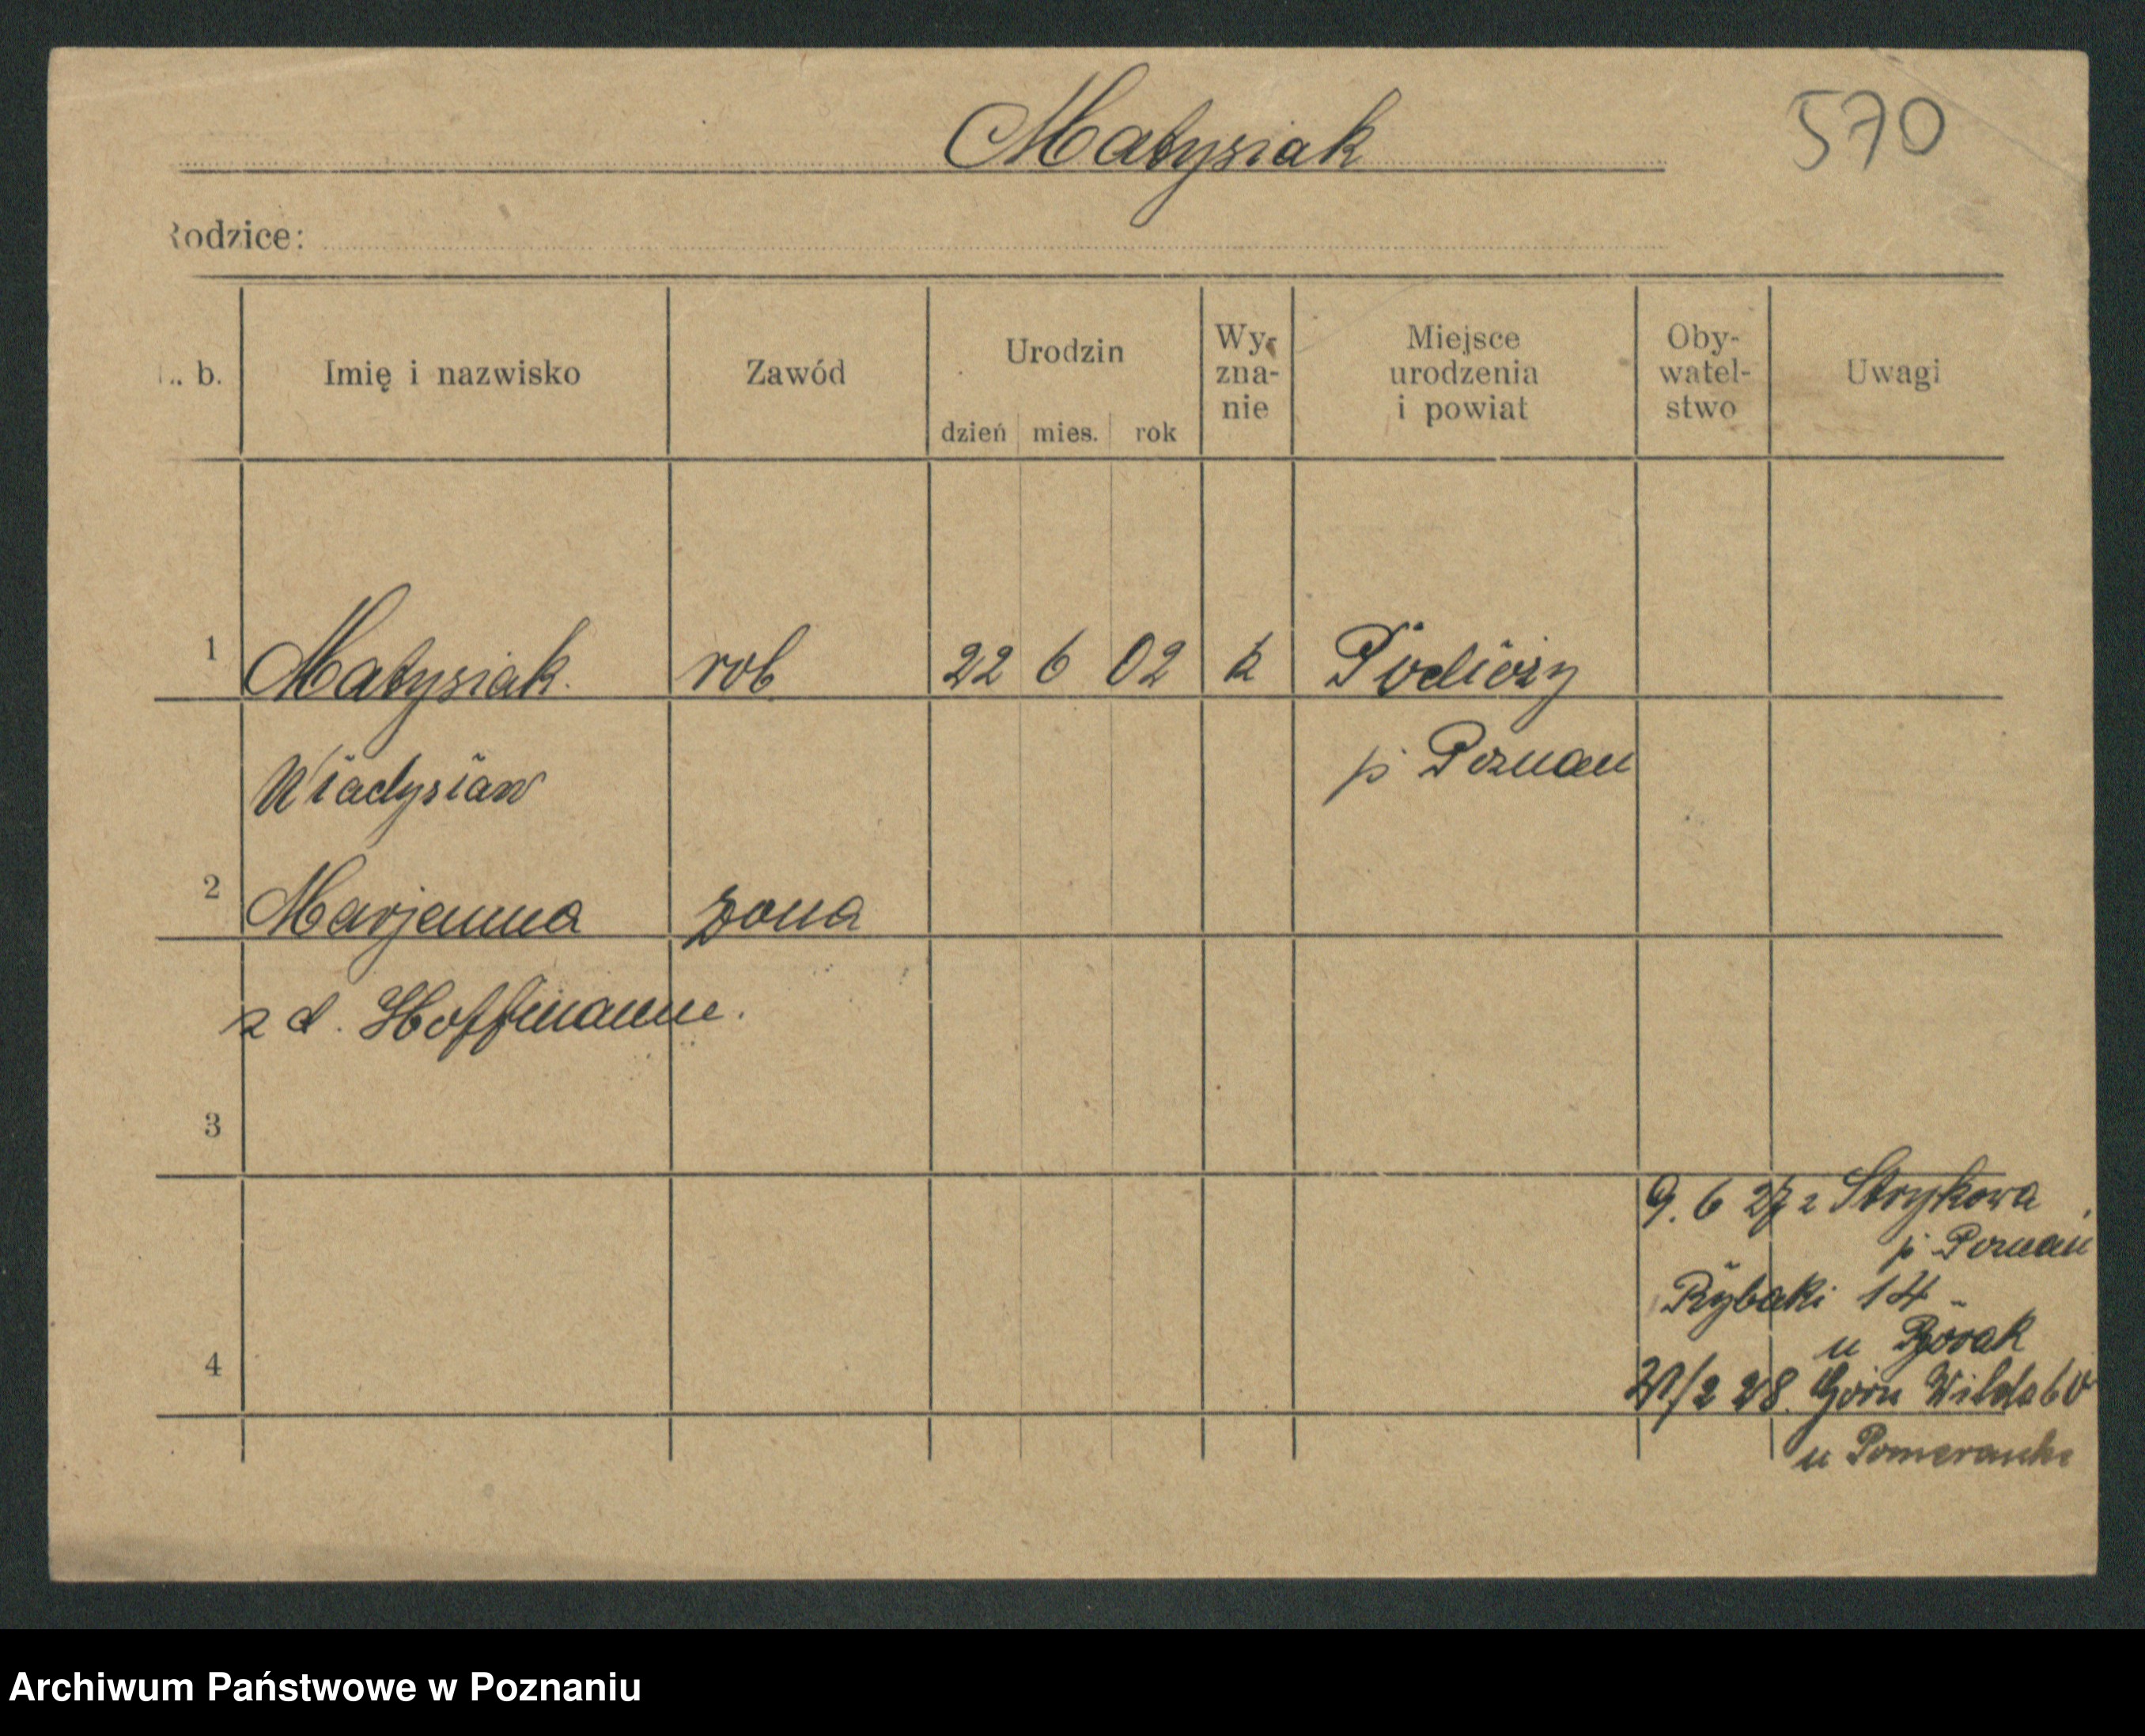 Matysiak
570
Rodzice:
L. b.
Imię i nazwisko
Zawód
Urodzin
dzień mies. rok
Wy-
zna-
nie
Miejsce
urodzenia
i powiat
Oby-
watel-
stwo
Uwagi
1 Matysiak rob 22 6 02 k
Władysław p Poznań
2 Marjanna żona
z d. Hoffmann.
3
9. 6 27 z Strykowa
p Poznań
Rybaki 14
u
4
21/2 28. Górn Wilda 60
u
Archiwum Państwowe w Poznaniu